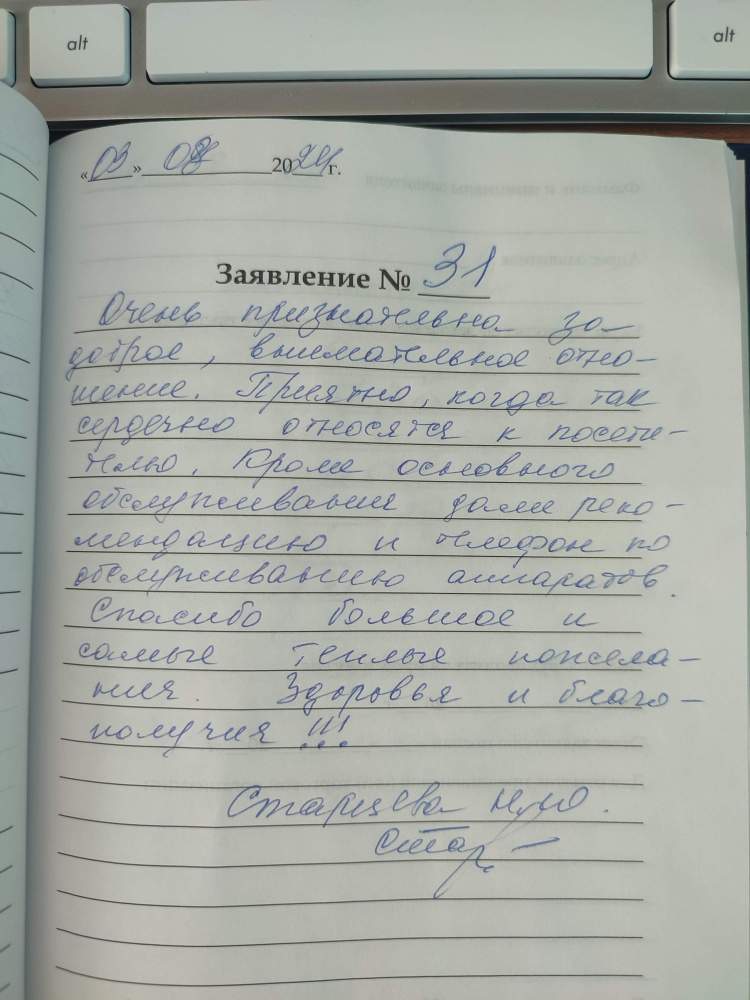 alt
alt
«03» 08 2024 г.
Заявление № 31
Очень признательна за
доброе, внимательное отно-
шение. Приятно, когда так
сердечно относятся к посети-
телю. Кроме основного
обслуживания дали реко-
мендацию и телефон по
обслуживанию аппаратов.
Спасибо большое и
самые теплые пожела-
ния. Здоровья и благо-
получия !!!
Старцева Н.Ю.
Стар